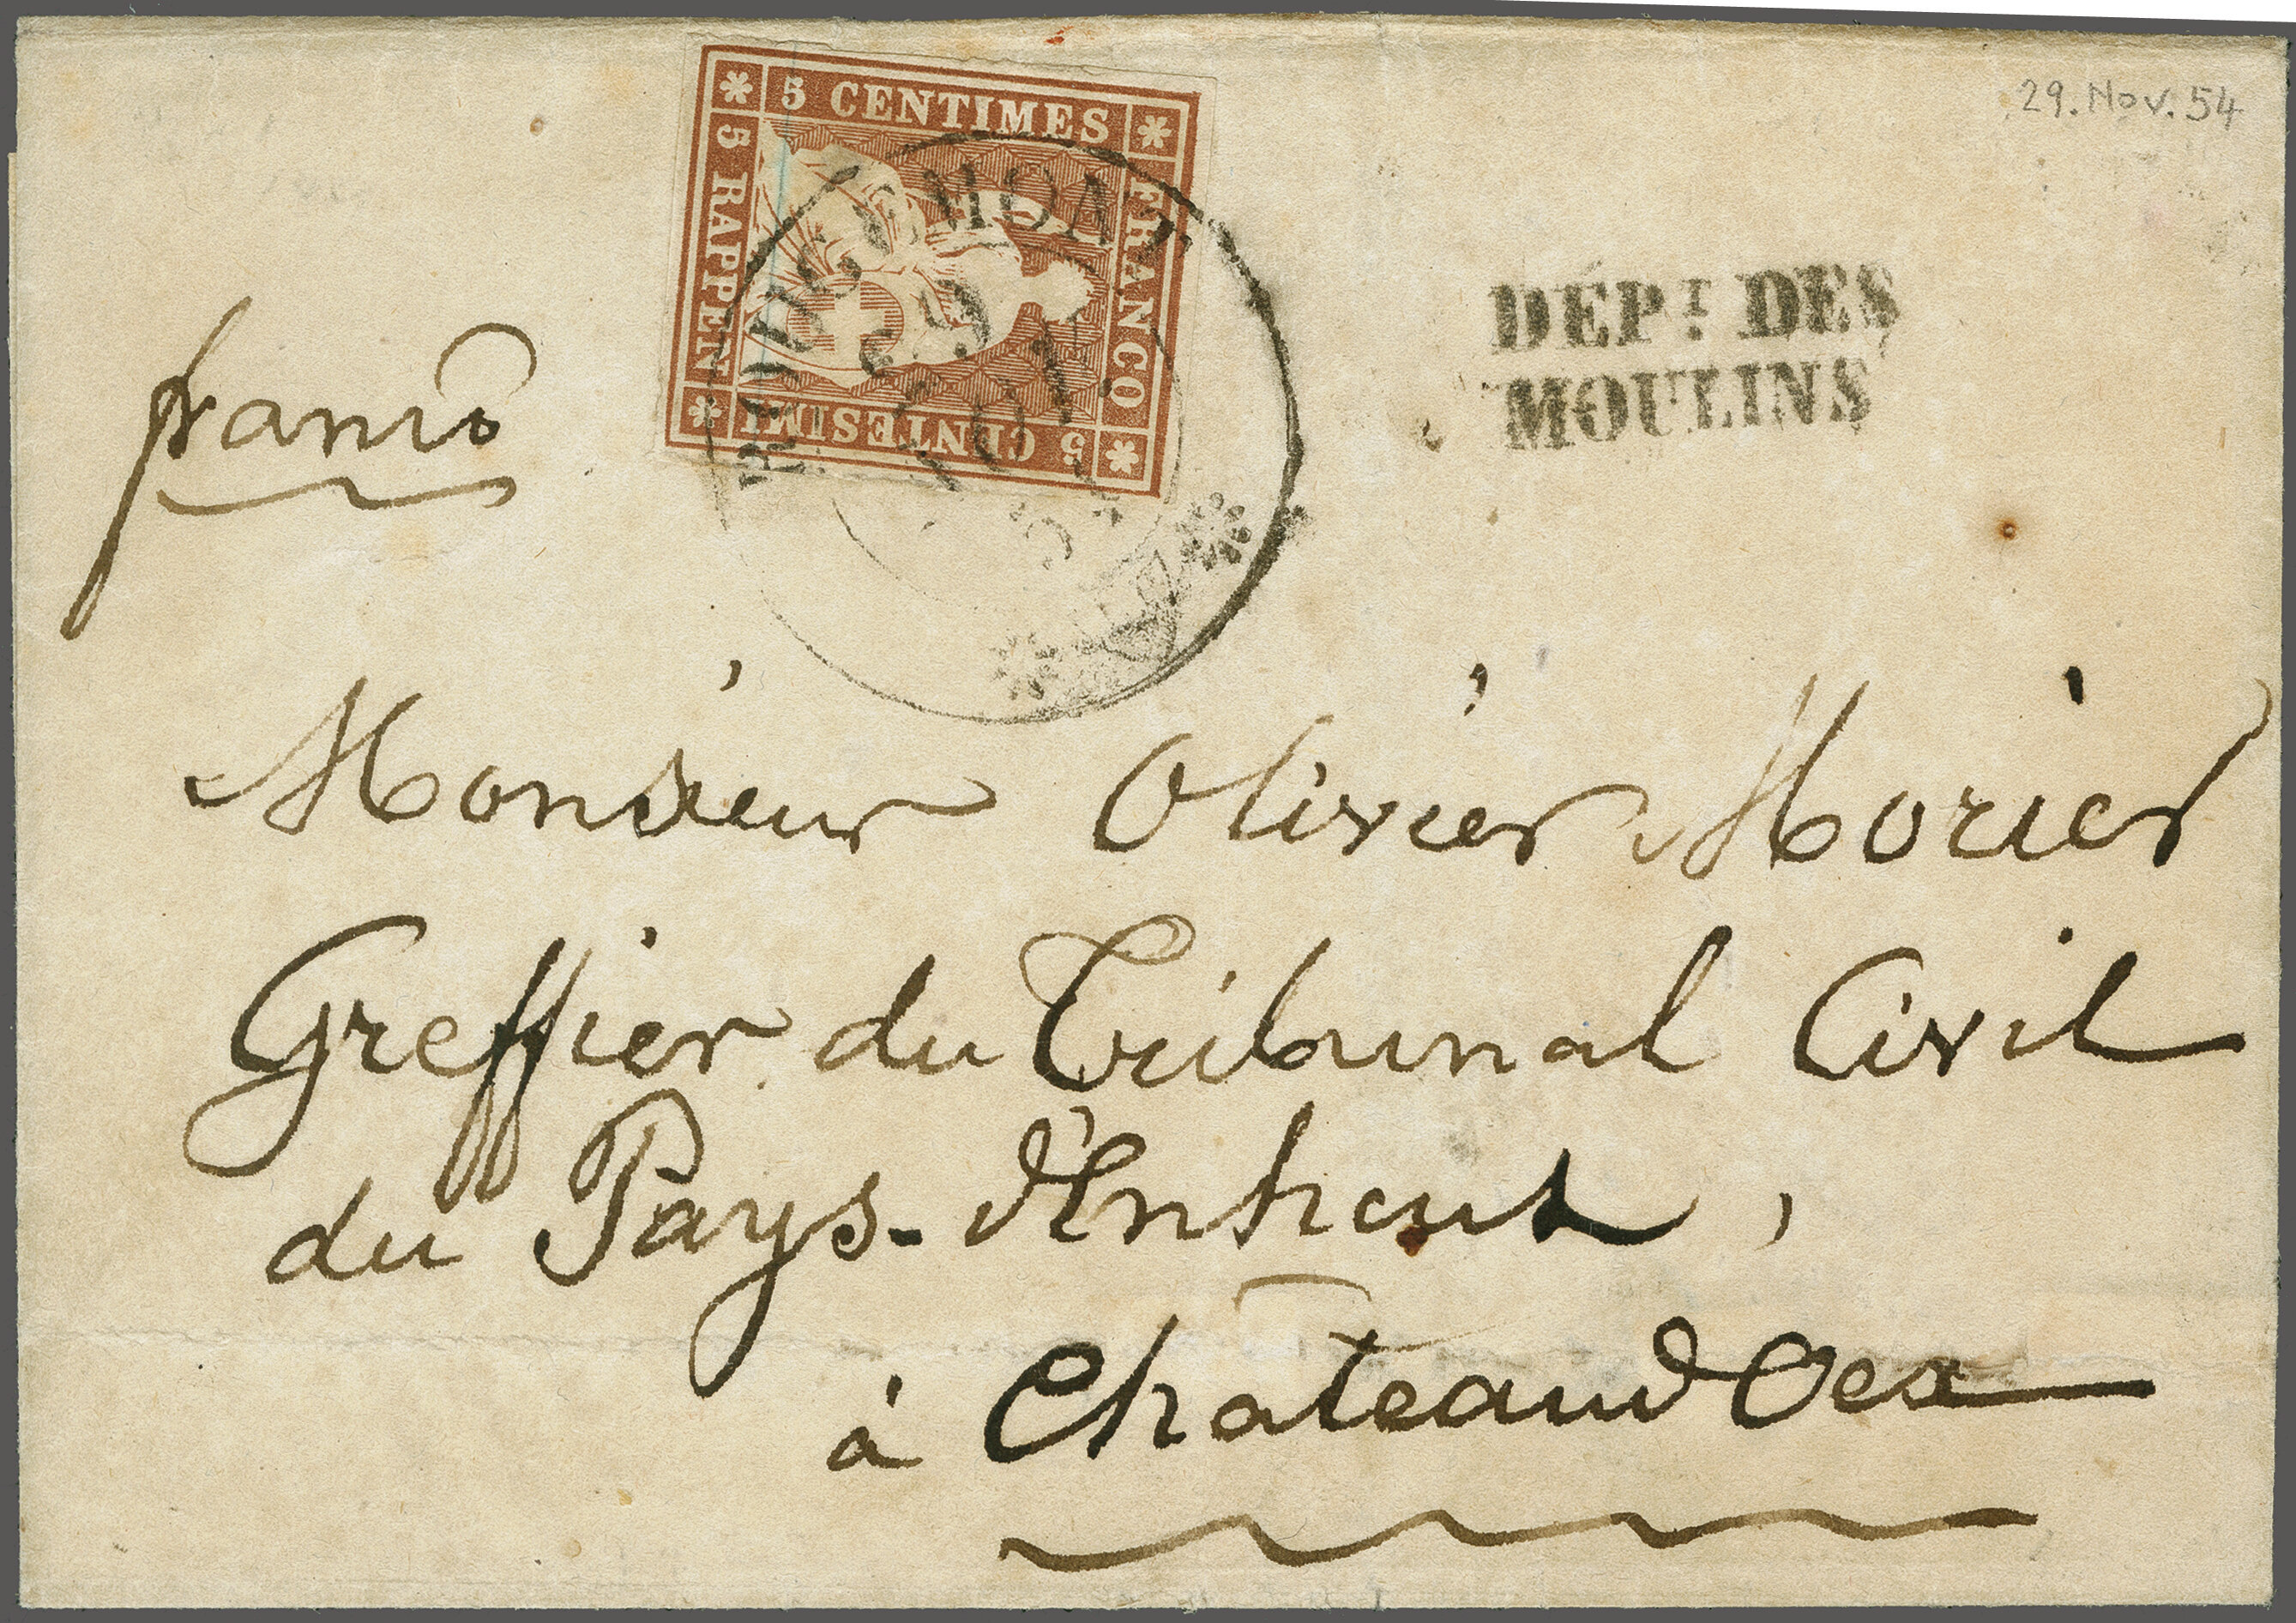 29. Nov. 54
5 CENTIMES
FRANCO
5 CENTESIMI
5 RAPPEN
ROUGEMONT
29
NOV
54
DÉPT DES
MOULINS
franco
Monsieur Olivier Morier
Greffier du Tribunal Civil
du Pays-d'Enhaut,
à Chateaud'Oex